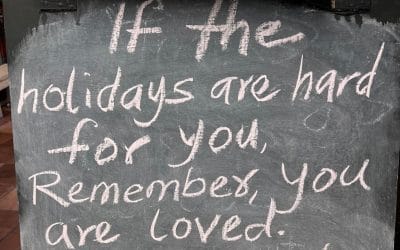 If the
holidays are hard
for you,
Remember, you
are loved.